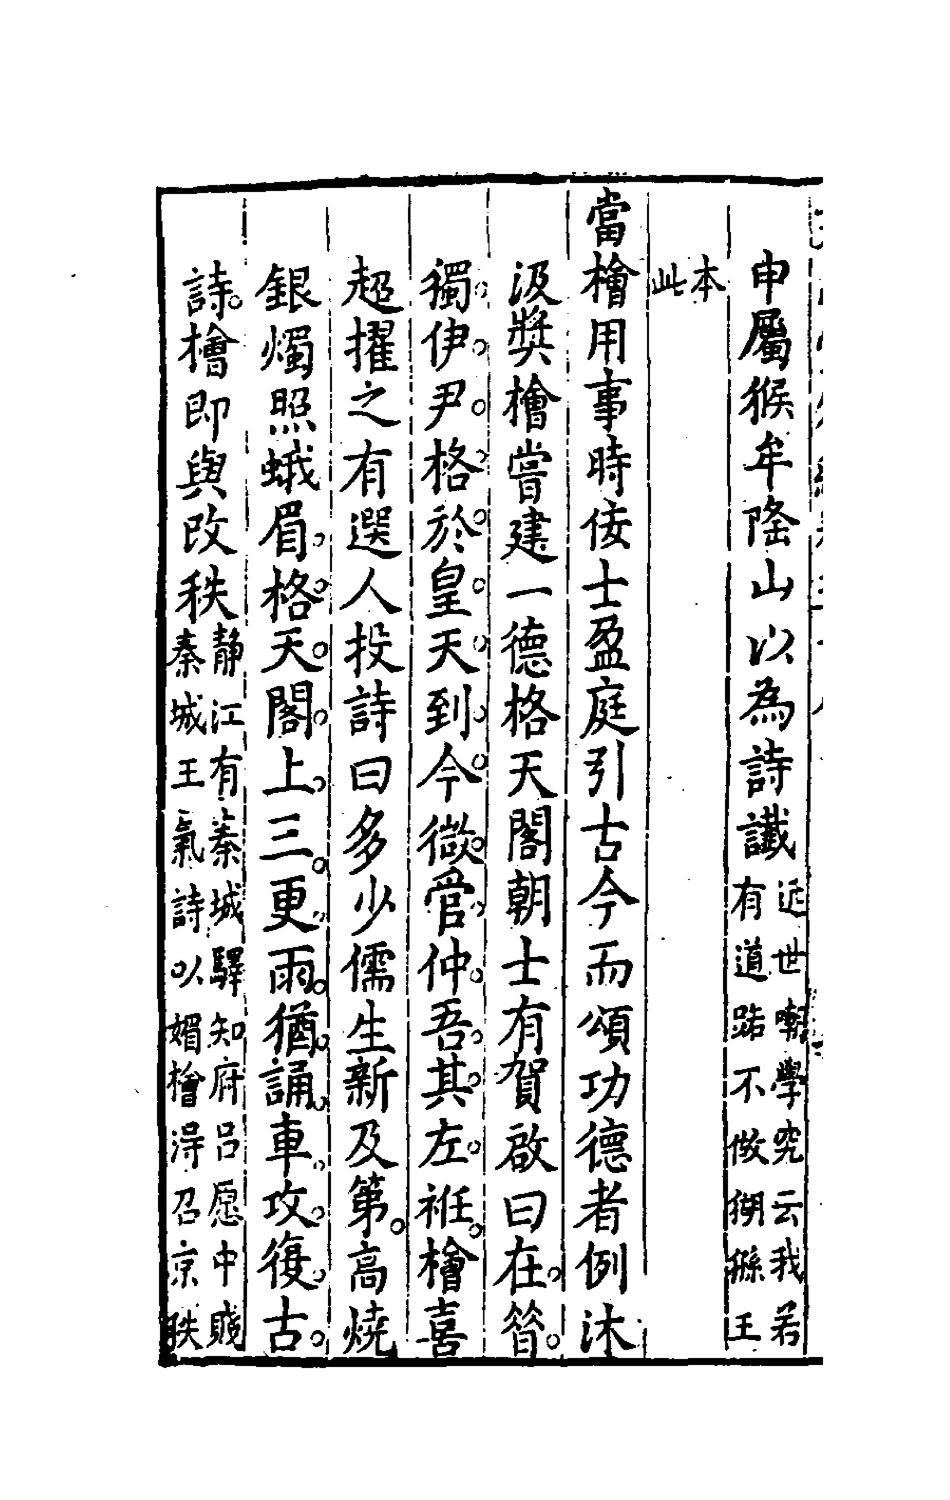 申屬猴牟隆山以為詩讖近世嘲學究云我若
有道路不做猢猻王
本
此
當檜用事時佞士盈庭引古今而頌功德者例沐
汲獎檜嘗建一德格天閣朝士有賀啟曰在昔
獨伊尹格於皇天到今微管仲吾其左衽檜喜
超擢之有選人投詩曰多少儒生新及第高燒
銀燭照蛾眉格天閣上三更雨猶誦車攻復古
詩檜即與改秩靜江有秦城驛知府呂愿中賦
秦城王氣詩以媚檜得召京秩